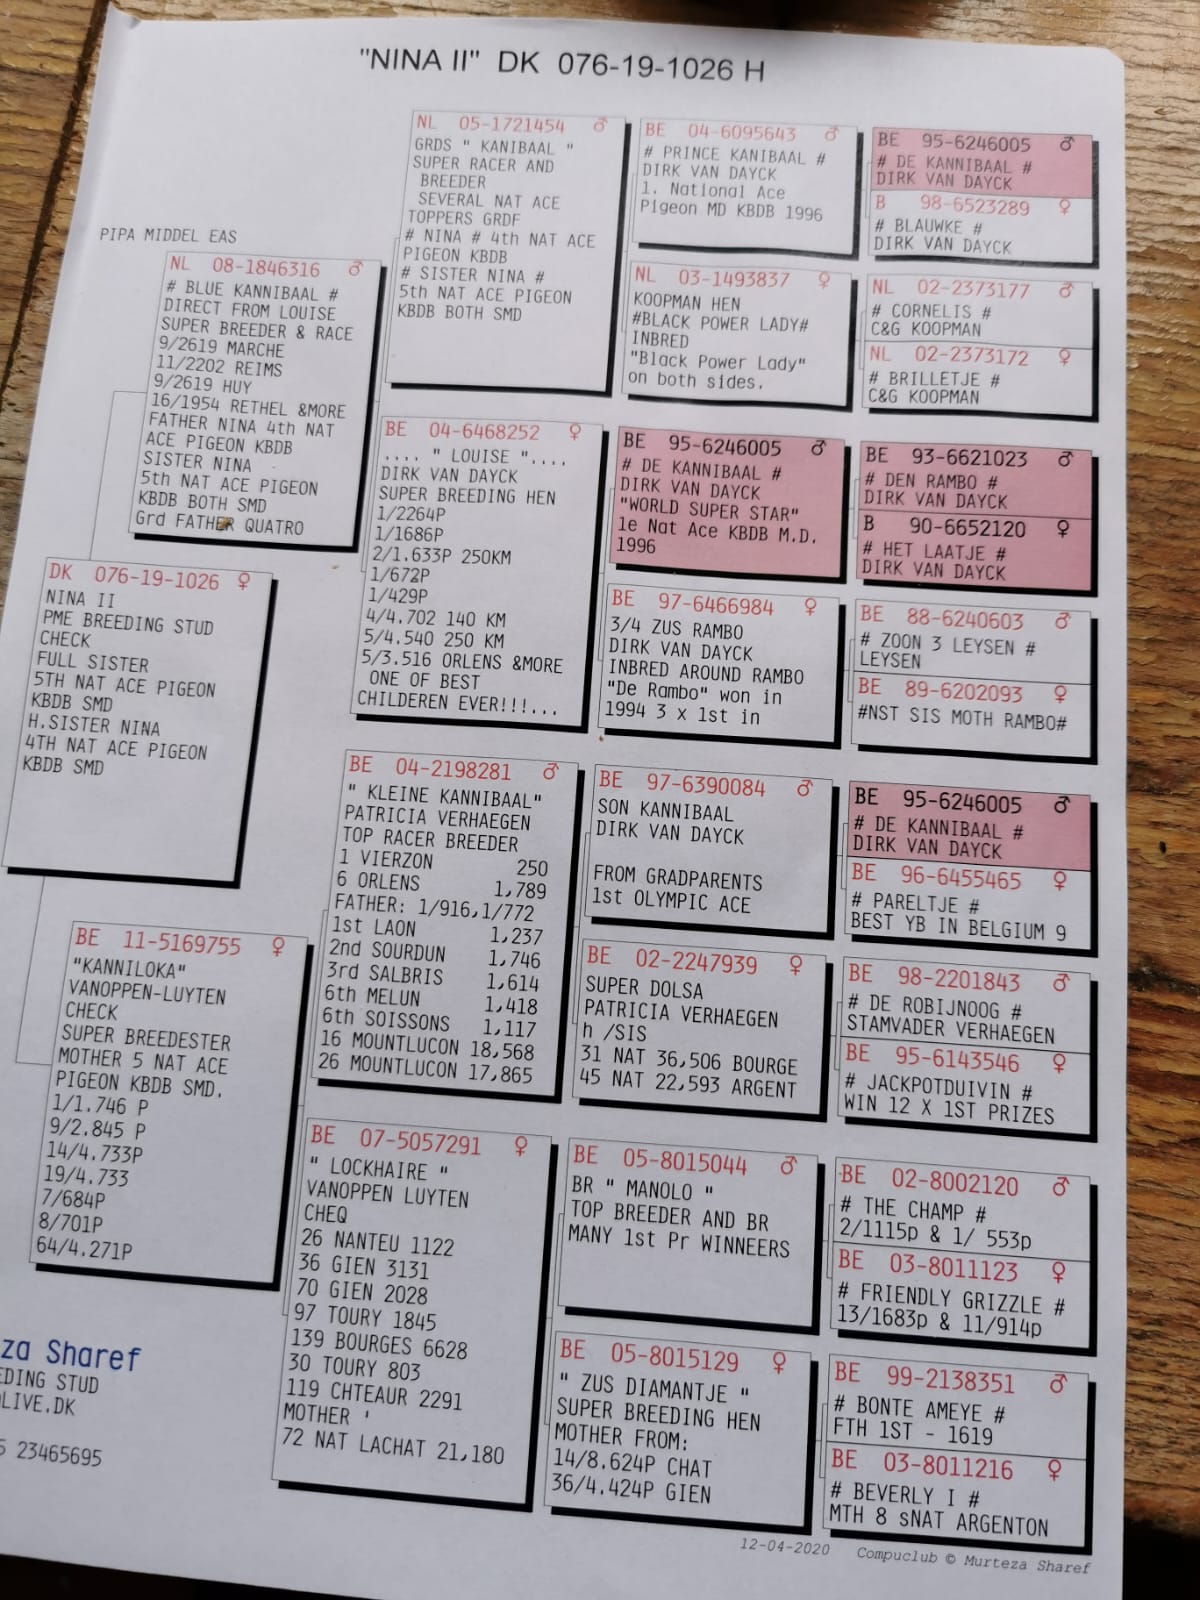 "NINA II" DK 076-19-1026 H
PIPA MIDDEL EAS
NL 08-1846316 ♂
# BLUE KANNIBAAL #
DIRECT FROM LOUISE
SUPER BREEDER & RACE
9/2619 MARCHE
11/2202 REIMS
9/2619 HUY
16/1954 RETHEL &MORE
FATHER NINA 4th NAT
ACE PIGEON KBDB
SISTER NINA
5th NAT ACE PIGEON
KBDB BOTH SMD
Grd FATHER QUATRO
DK 076-19-1026 ♀
NINA II
PME BREEDING STUD
CHECK
FULL SISTER
5TH NAT ACE PIGEON
KBDB SMD
H.SISTER NINA
4TH NAT ACE PIGEON
KBDB SMD
BE 11-5169755 ♀
"KANNILOKA"
VANOPPEN-LUYTEN
CHECK
SUPER BREEDESTER
MOTHER 5 NAT ACE
PIGEON KBDB SMD.
1/1.746 P
9/2.845 P
14/4.733P
19/4.733
7/684P
8/701P
64/4.271P
za Sharef
EDING STUD
LIVE.DK
5 23465695
NL 05-1721454 ♂
GRDS " KANIBAAL "
SUPER RACER AND
BREEDER
SEVERAL NAT ACE
TOPPERS GRDF
# NINA # 4th NAT ACE
PIGEON KBDB
# SISTER NINA #
5th NAT ACE PIGEON
KBDB BOTH SMD
BE 04-6468252 ♀
.... " LOUISE "....
DIRK VAN DAYCK
SUPER BREEDING HEN
1/2264P
1/1686P
2/1.633P 250KM
1/672P
1/429P
4/4.702 140 KM
5/4.540 250 KM
5/3.516 ORLENS &MORE
ONE OF BEST
CHILDEREN EVER!!!...
BE 04-2198281 ♂
" KLEINE KANNIBAAL"
PATRICIA VERHAEGEN
TOP RACER BREEDER
1 VIERZON 250
6 ORLENS 1,789
FATHER: 1/916,1/772
1st LAON 1,237
2nd SOURDUN 1,746
3rd SALBRIS 1,614
6th MELUN 1,418
6th SOISSONS 1,117
16 MOUNTLUCON 18,568
26 MOUNTLUCON 17,865
BE 07-5057291 ♀
" LOCKHAIRE "
VANOPPEN LUYTEN
CHEQ
26 NANTEU 1122
36 GIEN 3131
70 GIEN 2028
97 TOURY 1845
139 BOURGES 6628
30 TOURY 803
119 CHTEAUR 2291
MOTHER '
72 NAT LACHAT 21,180
BE 04-6095643 ♂
# PRINCE KANIBAAL #
DIRK VAN DAYCK
1. National Ace
Pigeon MD KBDB 1996
NL 03-1493837 ♀
KOOPMAN HEN
#BLACK POWER LADY#
INBRED
"Black Power Lady"
on both sides.
BE 95-6246005 ♂
# DE KANNIBAAL #
DIRK VAN DAYCK
"WORLD SUPER STAR"
1e Nat Ace KBDB M.D.
1996
BE 97-6466984 ♀
3/4 ZUS RAMBO
DIRK VAN DAYCK
INBRED AROUND RAMBO
"De Rambo" won in
1994 3 x 1st in
BE 97-6390084 ♂
SON KANNIBAAL
DIRK VAN DAYCK
FROM GRADPARENTS
1st OLYMPIC ACE
BE 02-2247939 ♀
SUPER DOLSA
PATRICIA VERHAEGEN
h /SIS
31 NAT 36,506 BOURGE
45 NAT 22,593 ARGENT
BE 05-8015044 ♂
BR " MANOLO "
TOP BREEDER AND BR
MANY 1st Pr WINNEERS
BE 05-8015129 ♀
" ZUS DIAMANTJE "
SUPER BREEDING HEN
MOTHER FROM:
14/8.624P CHAT
36/4.424P GIEN
BE 95-6246005 ♂
# DE KANNIBAAL #
DIRK VAN DAYCK
B 98-6523289 ♀
# BLAUWKE #
DIRK VAN DAYCK
NL 02-2373177 ♂
# CORNELIS #
C&G KOOPMAN
NL 02-2373172 ♀
# BRILLETJE #
C&G KOOPMAN
BE 93-6621023 ♂
# DEN RAMBO #
DIRK VAN DAYCK
B 90-6652120 ♀
# HET LAATJE #
DIRK VAN DAYCK
BE 88-6240603 ♂
# ZOON 3 LEYSEN #
LEYSEN
BE 89-6202093 ♀
#NST SIS MOTH RAMBO#
BE 95-6246005 ♂
# DE KANNIBAAL #
DIRK VAN DAYCK
BE 96-6455465 ♀
# PARELTJE #
BEST YB IN BELGIUM 9
BE 98-2201843 ♂
# DE ROBIJNOOG #
STAMVADER VERHAEGEN
BE 95-6143546 ♀
# JACKPOTDUIVIN #
WIN 12 X 1ST PRIZES
BE 02-8002120 ♂
# THE CHAMP #
2/1115p & 1/ 553p
BE 03-8011123 ♀
# FRIENDLY GRIZZLE #
13/1683p & 11/914p
BE 99-2138351 ♂
# BONTE AMEYE #
FTH 1ST - 1619
BE 03-8011216 ♀
# BEVERLY I #
MTH 8 sNAT ARGENTON
12-04-2020 Compuclub © Murteza Sharef